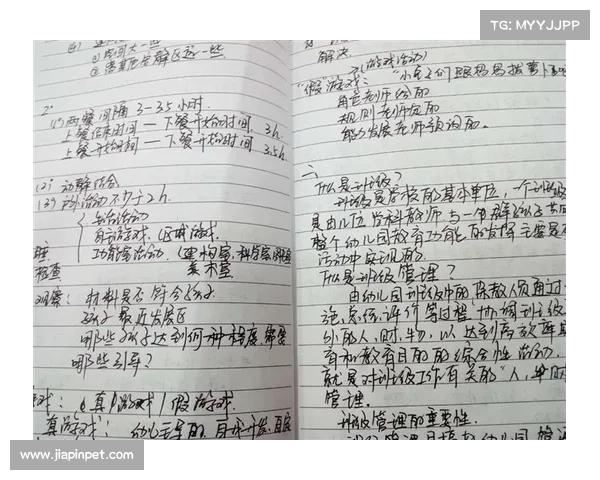 TG: MYYJJPP
①
②
2.
(1)两餐间隔 3-3.5小时.
上餐结束时间 — 下餐开始时间 3h.
上餐开始时间 — 下餐开始时间 3.5h.
(2) 动静结合
(3) 户外活动不少于2h.
生活活动
自主游戏、区域游戏.
功能室活动、(建构室,科学室
美术室
检查
观察: 材料是否符合孩子
孩子最近发展区
哪些孩子达到何种程度
哪些引导?
戏: 真游戏/假游戏
真游戏: 幼儿主导的,
解决.
(游戏活动)
"假"游戏:
角色老师给的
规则老师定的
能力发展老师预设的.
二、
什么是班级?
班级是学校的基本单位,一个班级
是由几位学科教师与一群孩子共同
整个幼儿园教育功能的发挥主要是
活动中实现的.
什么是班级管理?
由幼儿园班级中的保教人员通过
施、总结、评价等过程协调班级
外的人、财、物,以达到高效率
有和教育目的的综合性活动,
就是对班级工作有关的"人,事,时
管理.
班级管理的重要性.
www.jiapinpet.com